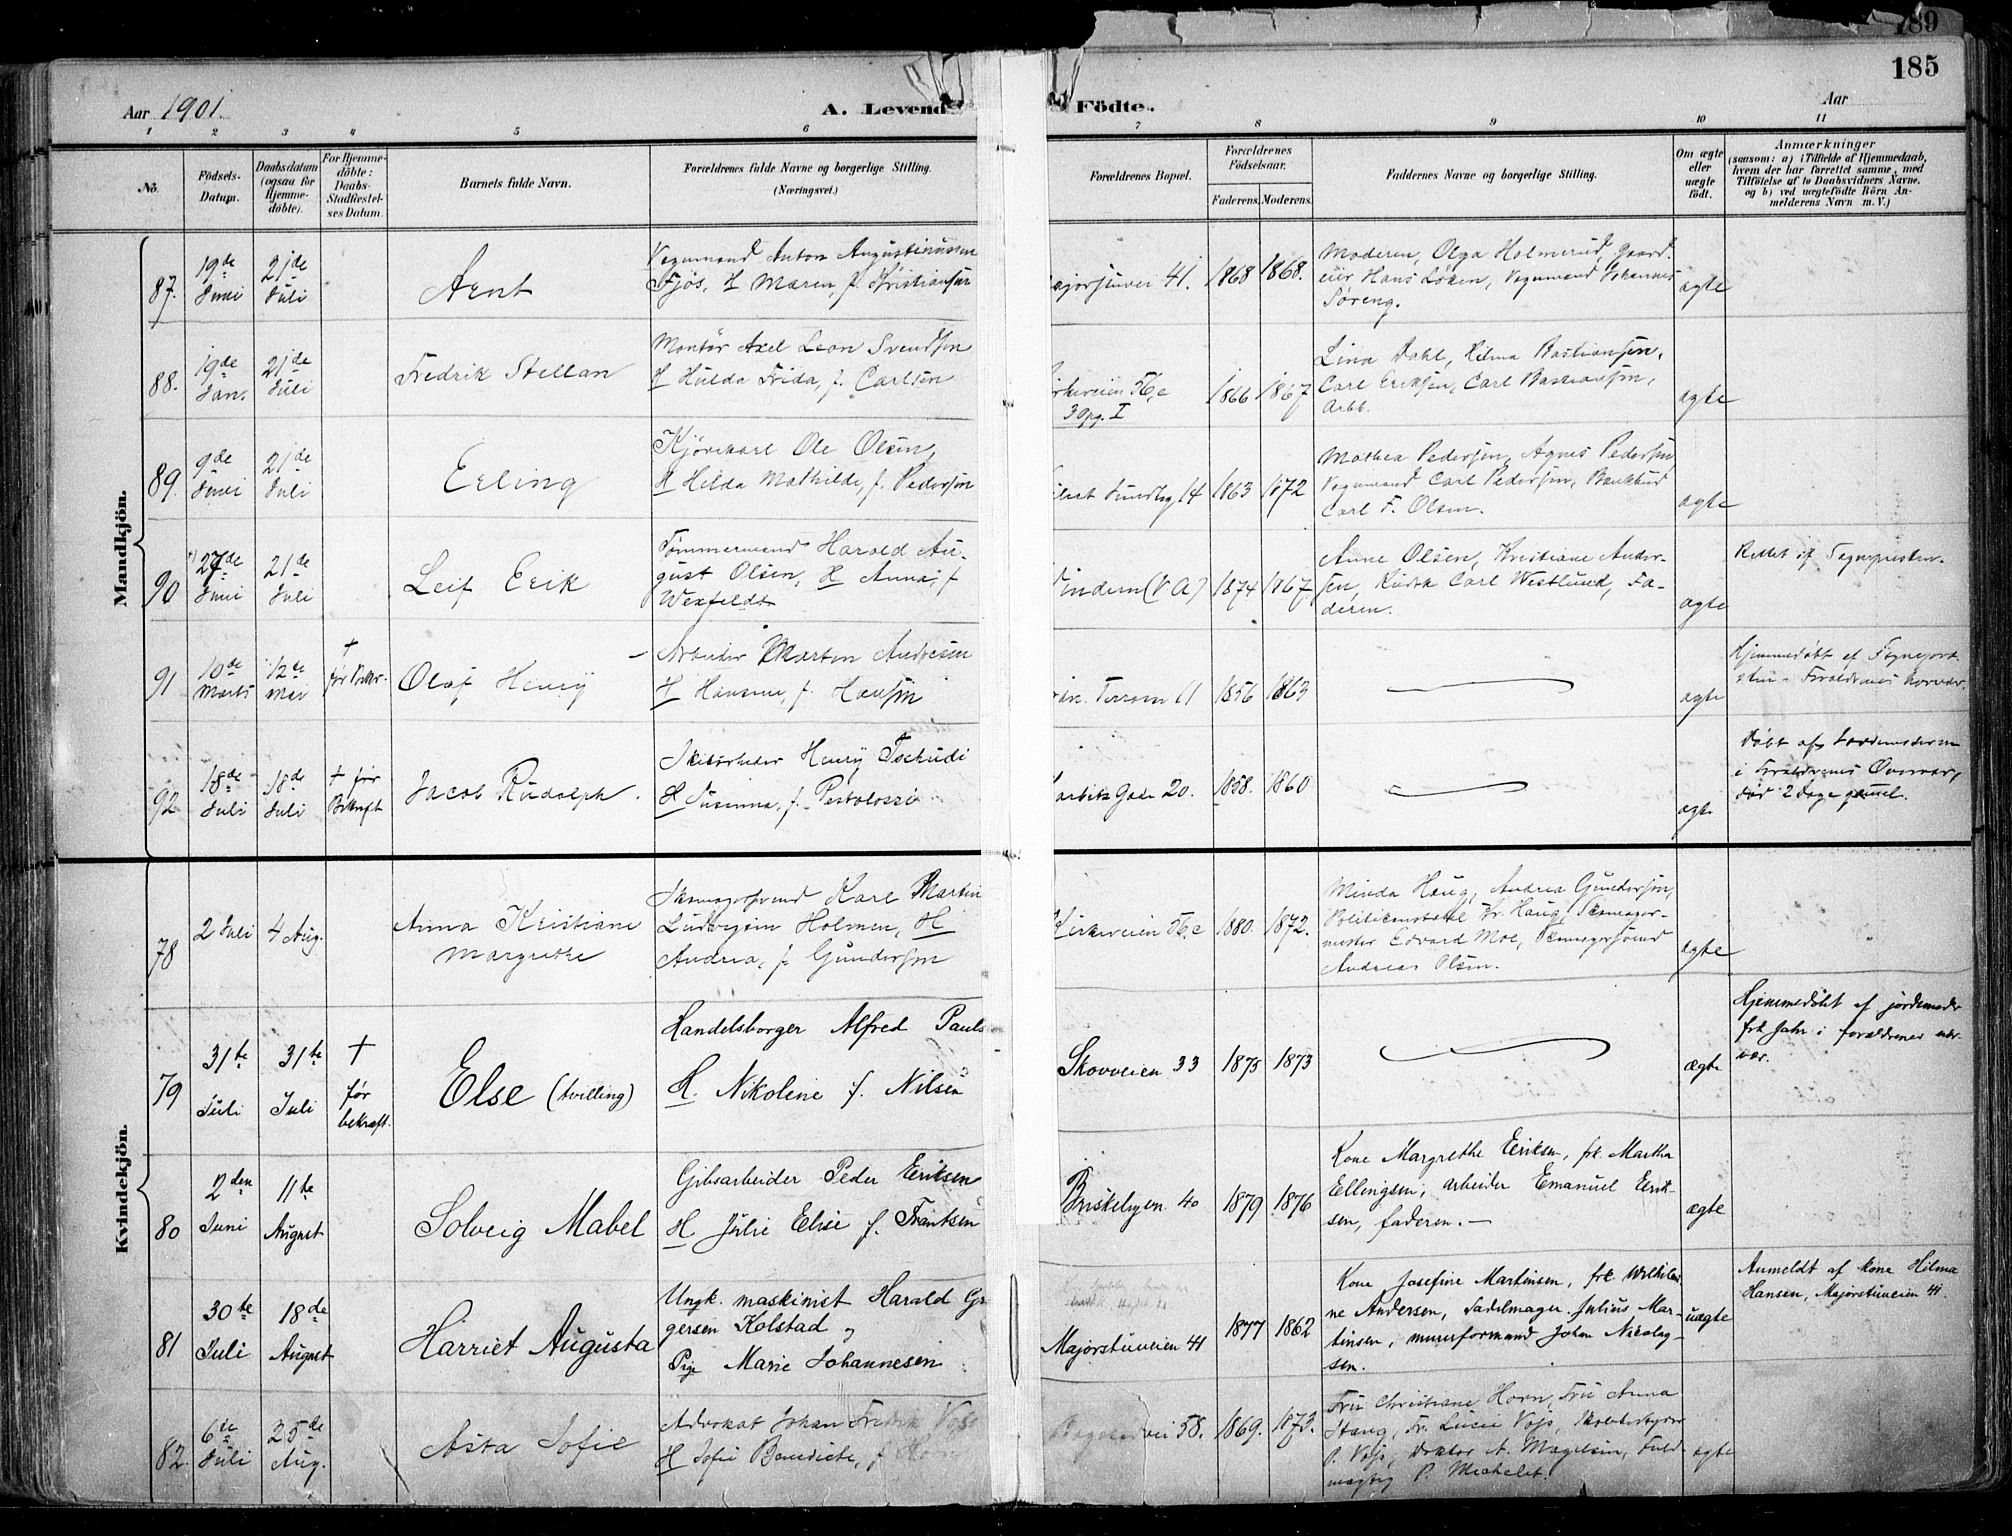 189
185
Aar 1901.
A. Levende Födte.
Aar
1 2 3 4 5 6 7 8 9 10 11
No.
Födsels-Datum.
Daabsdatum (ogsaa for Hjemme-döbte).
For Hjemme-döbte: Daabs-Stadfæstel-ses Datum.
Barnets fulde Navn.
Forældrenes fulde Navne og borgerlige Stilling.
(Næringsvei.)
Forældrenes Bopæl.
Forældrenes Födselsaar.
Faderens. Moderens.
Faddernes Navne og borgerlige Stilling.
Om ægte eller uægte födt.
Anmærkninger
(saasom: a) i Tilfælde af Hjemmedaab,
hvem der har forrettet samme, med
Tilföielse af to Daabsvidners Navne,
og b) ved uægtefödte Börn An-
melderens Navn m. V.)
Mandkjön.
87. 19de Juni 21de Juli
Arnt
Vognmand Anton Augustinussen
Fjøs, H Maren, f. Kristiansen
41. 1868 1868.
Moderen, Olga Holmerud, Gaard.
eier Hans Løken, Vognmand Johannes
Søreng.
ægte
88. 19de Jan. 21de Juli
Fredrik Stellan
Montør Axel Leon Svendsen
H Hulda Frida, f. Carlsen
56,c
3 Opg. I
1866 1867
Lina Dahl, Hilma Bastiansen,
Carl Eriksen, Carl Bastiansen,
Arbb.
ægte
89. 9de Juni 21de Juli
Erling
Kjørekarl Ole Olsen,
H Hilda Mathilde, f. Pedersen
14 1863 1872
Mathea Pedersen, Agnes Pedersen
Vognmand Carl Pedersen, Bankbud
Carl F. Olsen.
ægte
90 27de Juni 21de Juli
Leif Erik
Tømmermand Harald Au-
gust Olsen, H Anna, f
Wexfeldt
Vindern (V.A) 1874 1867
Anne Olsen, Kristiane Ander-
sen, Kudsk Carl Westlund, Fa-
deren.
ægte
Rettet af Sognepresten.
91 10de Marts 12te Mai
† før Bekr.
Olaf Henry
Arbeider Morten Andresen
H Hansine, f. Hansen
Terrasse 11 1856 1863
ægte
Hjemmedøbt af Sognepre-
sten i Forældrenes Nærvær.
92 18de Juli 18de Juli
† før Bekræft
Jacob Rudolph.
Henry Tschudi
H Susanna, f. Pestalozzi
Gade 20. 1858. 1860
ægte
Døbt af Jordemoderen
i Forældrenes Overvær,
død 2 Dage gammel.
Kvindekjön.
78 2 Juli 4 Aug.
Anna Kristiane
Margrethe
Skomagersvend Karl Martin
Ludvigsen Holmen, H
Andrea, f. Gundersen
Kirkeveien 56,c 1880. 1872.
Minda Haug, Andrea Gundersen,
Politikonstabel Kr. Haug, Skomager-
mester Edvard Moe, Skomagersvend
Andreas Olsen.
ægte
79 31te Juli 31te Juli
† før bekræft.
Else (tvilling)
Handelsborger Alfred Pauls
H. Nikoline f. Nilsen
Skovveien 33 1875 1873
ægte
Hjemmedøbt af jordemoder
frk Jahr i forældrenes nær-
vær.
80 2den Juni 11te August
Solveig Mabel
Gibsarbeider Peder Eriksen
H. Julie Elise f. Frantsen
Briskebyen 40 1879 1876
Kone Margrethe Eriksen, frk. Martha
Ellingsen, arbeider Emanuel Erik-
sen, faderen.
ægte
81 30te Juli 18de August
Harriet Augusta
Ungk. maskinist Harald Gr
gersen Kolstad og
Pige Marie Johannesen
Majorstuveien 41 1877 1862
Kone Josefine Martinsen, frk Wilhelmi-
ne Andersen, Sadelmager Julius Mar-
tinsen, murerformand Johan Nicolay-
sen.
uægte
Anmeldt af kone Hilma
Hansen, Majorstuveien 41.
82. 6te Juli 25de Aug.
Asta Sofie
Advokat Johan Fredrik Vojs
H Sofie Benedicte, f. Horn
58. 1869. 1873.
Fru Christiane Horn, Fru Anna
Stang, Fr. Lucie Vojs,
P. Vojs, Doktor A. Magelsen, Fuld-
mægtig P. Michelet.
ægte